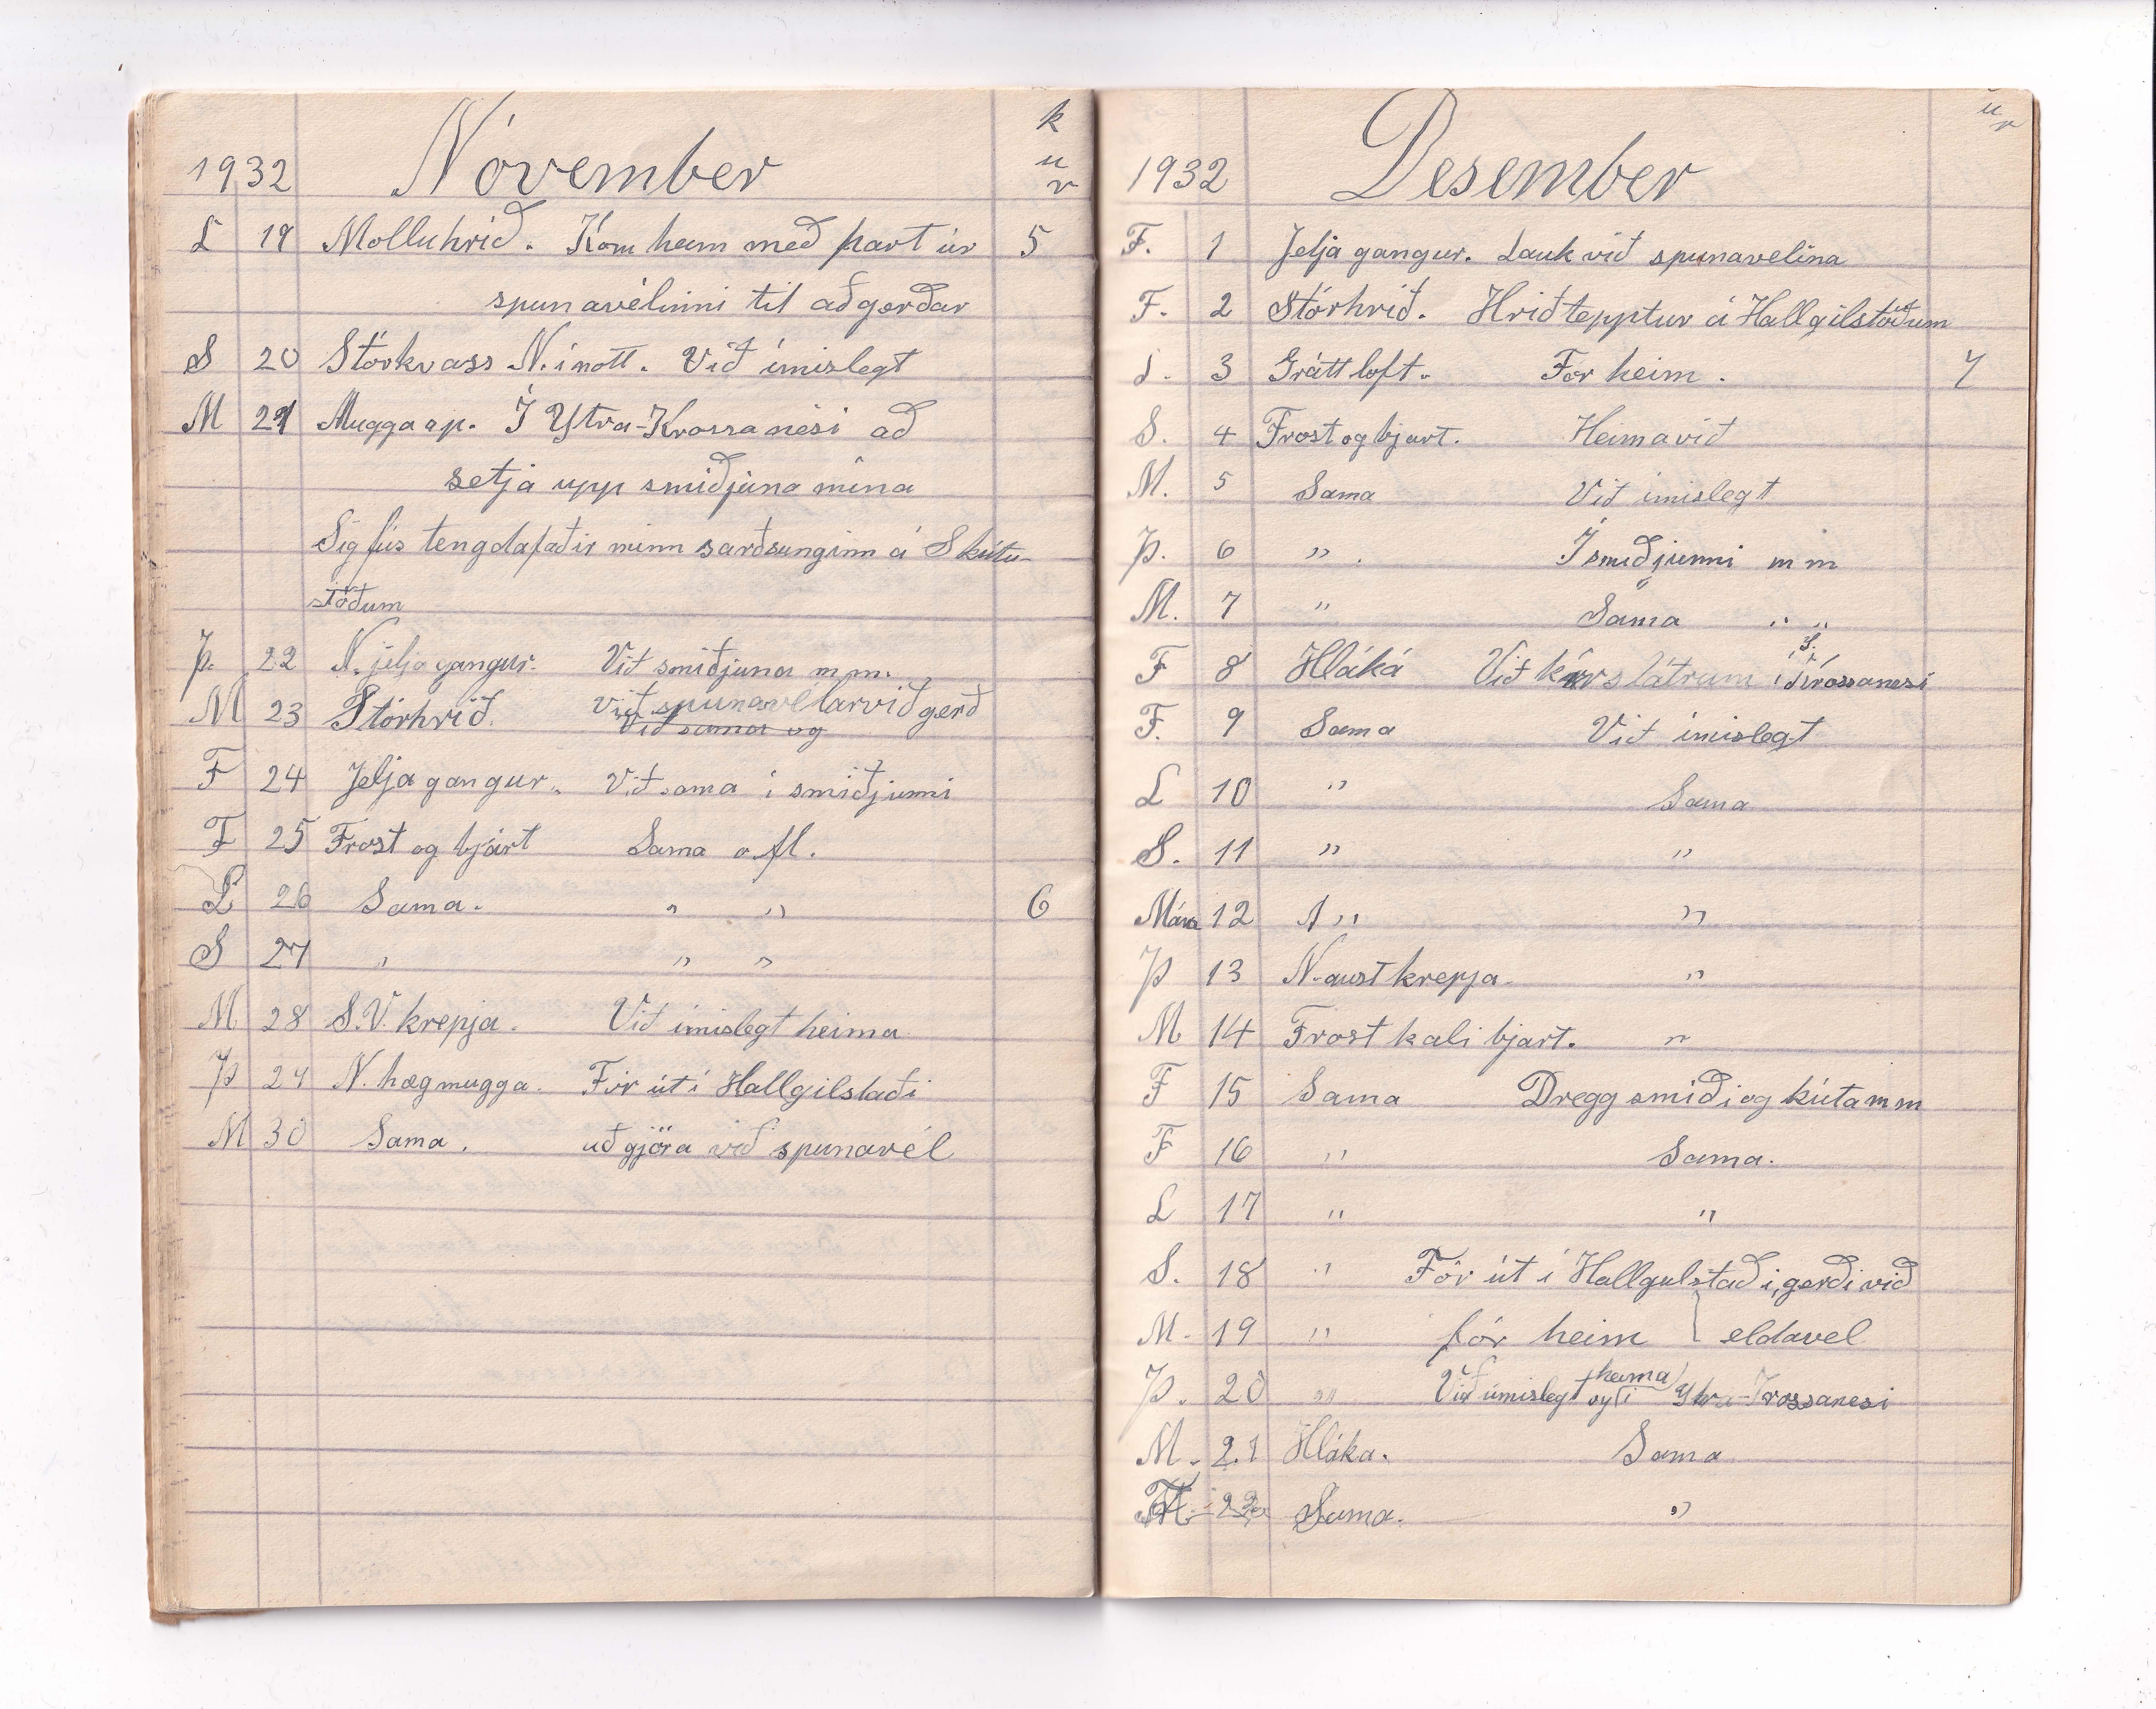 1932 Nóvember k u r
L 19 Molluhrið. Kom heim með part úr 5
spunavélinni til aðgerðar
S 20 Störkvass N. í nott. Við ímislegt
M 21 Mugga ap. Í Ytra-Krossanesi að
setja upp smiðjuna mína
Sigfús tengdafaðir minn sarðsunginn á Skútu-
stöðum
Þ. 22 N. jelja gangur. Við smiðjuna m.m.
M 23 Stórhrið. Við spunavélarviðgerð
Við sama og
F 24 Jelja gangur. Við sama í smiðjunni
F 25 Frost og bjárt Sama o fl.
L 26 Sama. " " 6
S 27 " " "
M 28 S.V. krepja. Við ímislegt heima
Þ 29 N. hægmugga. Fór út í Hallgilstaði
M 30 Sama. að gjöra við spunavél
1932 Desember u r
F. 1 Jelja gangur. Lauk við spunavelina
F. 2 Stórhrið. Hriðtepptur á Hallgilstöðum
L. 3 Gráttloft. For heim. 7
S. 4 Frost og bjart. Heimavið
M. 5 Sama Við imislegt
Þ. 6 ". Í smiðjunni m m
M. 7 " Sama " "
F 8 Hláká Við slátrum í S. Krossanesi
F. 9 Sama Við ímislegt
L 10 " Sama
S. 11 " "
Mána 12 " "
Þ 13 N-aust krepja. "
M 14 Frost kali bjart. "
F 15 Sama Dregg smiði og kúta m m
F 16 " Sama.
L 17 " "
S. 18 " Fór út í Hallgulstaði, gerði við
M. 19 " fór heim eldavel
Þ. 20 " Við ímislegt heima og í Ytra-Krossanesi
M. 21 Hláka. Sama
F. 22 Sama. "